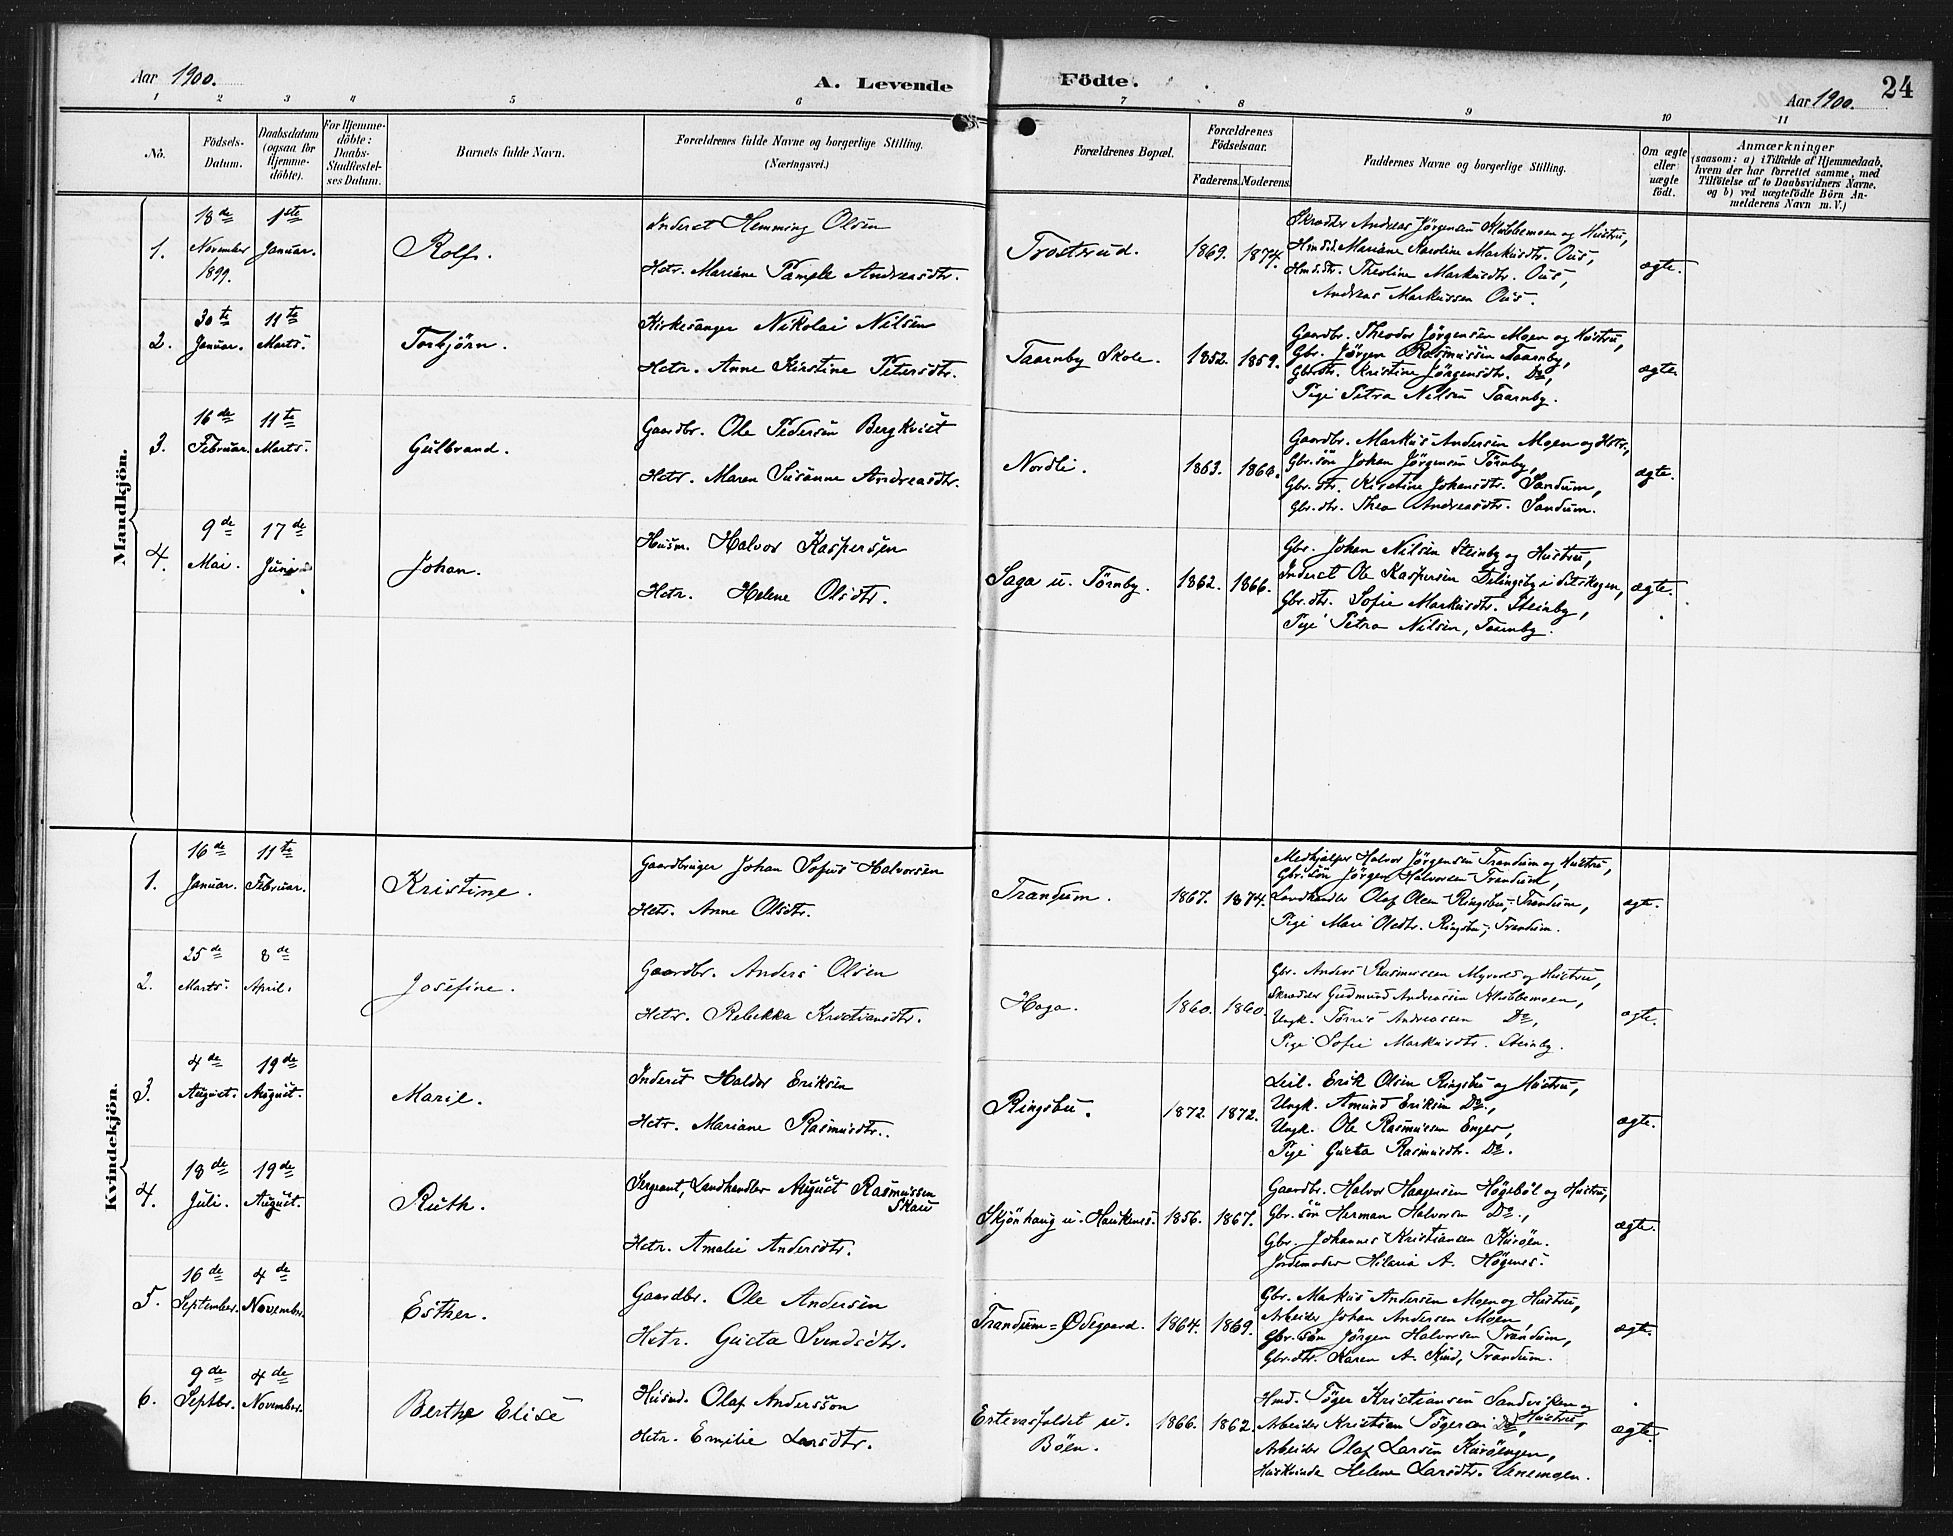 Aar 1900.
A. Levende
Födte.
Aar 1900.
24
1 2 3 4 5 6 7 8 9 10 11
No.
Födsels-
Datum.
Daabsdatum
(ogsaa for
Hjemme-
döbte).
For Hjemme-
döbte:
Daabs-
Stadfæstel-
ses Datum.
Barnets fulde Navn.
Forældrenes fulde Navne og borgerlige Stilling.
(Næringsvei.)
Forældrenes Bopæl.
Forældrenes
Födselsaar.
Faderens. Moderens.
Faddernes Navne og borgerlige Stilling.
Om ægte
eller
uægte
födt.
Anmærkninger
(saasom: a) i Tilfælde af Hjemmedaab,
hvem der har forrettet samme, med
Tilföielse af to Daabsvidners Navne,
og b) ved uægtefödte Börn An-
melderens Navn m. V.)
Mandkjön.
1.
18de
November
1899.
1ste
Januar.
Rolf.
Inderst Hemming Olsen
Hstr. Mariane Andreasdtr.
Trostrud.
1869. 1874.
Skrædder Andreas Jörgensen Klubbemoen og Hustru,
Hmd.d. Mariane Karoline Markusdtr. Ous,
Hmd.dtr. Theoline Markusdtr. Ous,
Andreas Markussen Ous.
ægte.
2.
30te
Januar.
11te
Marts.
Torbjörn.
Kirkesanger Nikolai Nilsen
Hstr. Anne Kirstine Petersdtr.
Taarnby Skole.
1852. 1859.
Gaardbr. Theodor Jörgensen Moen og Hustru,
Gbr. Jörgen Rasmussen Taarnby,
Gbr.dtr. Kristine Jörgensdtr. Do,
Pige Petra Nilsen Taarnby.
ægte.
3.
16de
Februar.
11te
Marts.
Gulbrand.
Gaardbr. Ole Pedersen Bergkvist
Hstr. Maren Susanne Andreasdtr.
Nordli.
1863. 1866.
Gaardbr. Markus Andersen Moen og Hstr.,
Gbr.sön Johan Jörgensen Törnby,
Gbr.dtr. Kristine Johansdtr. Sandum,
Gbr.dtr. Thea Andreasdtr. Sandum.
ægte.
4.
9de
Mai.
17de
Juni
Johan.
Husm. Halvor Kaspersen
Hstr. Helene Olsdtr.
Saga u. Törnby.
1862. 1866.
Gbr. Johan Nilsen Steinby og Hustru,
Inderst Ole Kaspersen i Setskogen,
Gbr.dtr. Sofie Markusdtr. Steinby,
Pige Petra Nilsen, Taarnby.
ægte.
Kvindekjön.
1.
16de
Januar.
11te
Februar.
Kristine.
Gaardbruger Johan Sofus Halvorsen
Hstr. Anne Olsdtr.
Trandum.
1867. 1874.
Medhjælper Halvor Jörgensen Trandum og Hustru,
Gbr.sön Jörgen Halvorsen Trandum,
Landhandler Olaf Olsen Ringsbu, Trandum,
Pige Mari Olsdtr. Ringsbu, Trandum.
ægte.
2.
25de
Marts.
8de
April.
Josefine.
Gaardbr. Anders Olsen
Hstr. Rebekka Kristiansdtr.
Haga.
1860. 1860.
Gbr. Anders Rasmussen Myrvold og Hustru,
Skrædder Gudmund Andreassen Klubbemoen,
Ungk. Andreassen Do,
Pige Sofie Markusdtr. Steinby.
ægte.
3.
4de
August.
19de
August.
Marie.
Inderst Haldor Eriksen
Hstr. Mariane Rasmusdtr.
Ringsbu.
1872. 1872.
Leil. Erik Olsen Ringsbu og Hustru,
Ungk. Amund Eriksen Do.,
Ungk. Ole Rasmussen Enger,
Pige Gusta Rasmusdtr. Do.
ægte.
4.
18de
Juli.
19de
August.
Ruth.
Sergeant, Landhandler August Rasmussen
Skau
Hstr. Amalie Andersdtr.
Skjönhaug u. Haukenes.
1856. 1867.
Gaardbr. Halvor Haagensen Högebøl og Hustru,
Gbr.sön Herman Halvorsen Do.,
Gbr. Johannes Kristiansen Kuröen.
Jordemoder Hilaria A. Högnes.
ægte.
5.
16de
September.
4de
Novembr.
Esther.
Gaardbr. Ole Andersen
Hstr. Gusta Svendsdtr.
Trandum=Ødegaard.
1864. 1869.
Gbr. Markus Andersen Moen og Hustru,
Arbeider Johan Andersen Moen,
Gbr.sön Jörgen Halvorsen Trandum,
Gbr.dtr. Karen A. Trandum.
ægte.
6.
9de
Septbr.
4de
November.
Berthe Elise
Husmd. Olaf Andersson
Hstr. Emilie Larsdtr.
u.
Böen.
1866. 1862.
Hmd. Töger Kristiansen Sandviken og
Hustru,
Arbeider Kristian Tögersen Do,
Arbeider Olaf Larsen Kuröengen,
Huskvinde Helene Larsdtr. Vanemoen.
ægte.